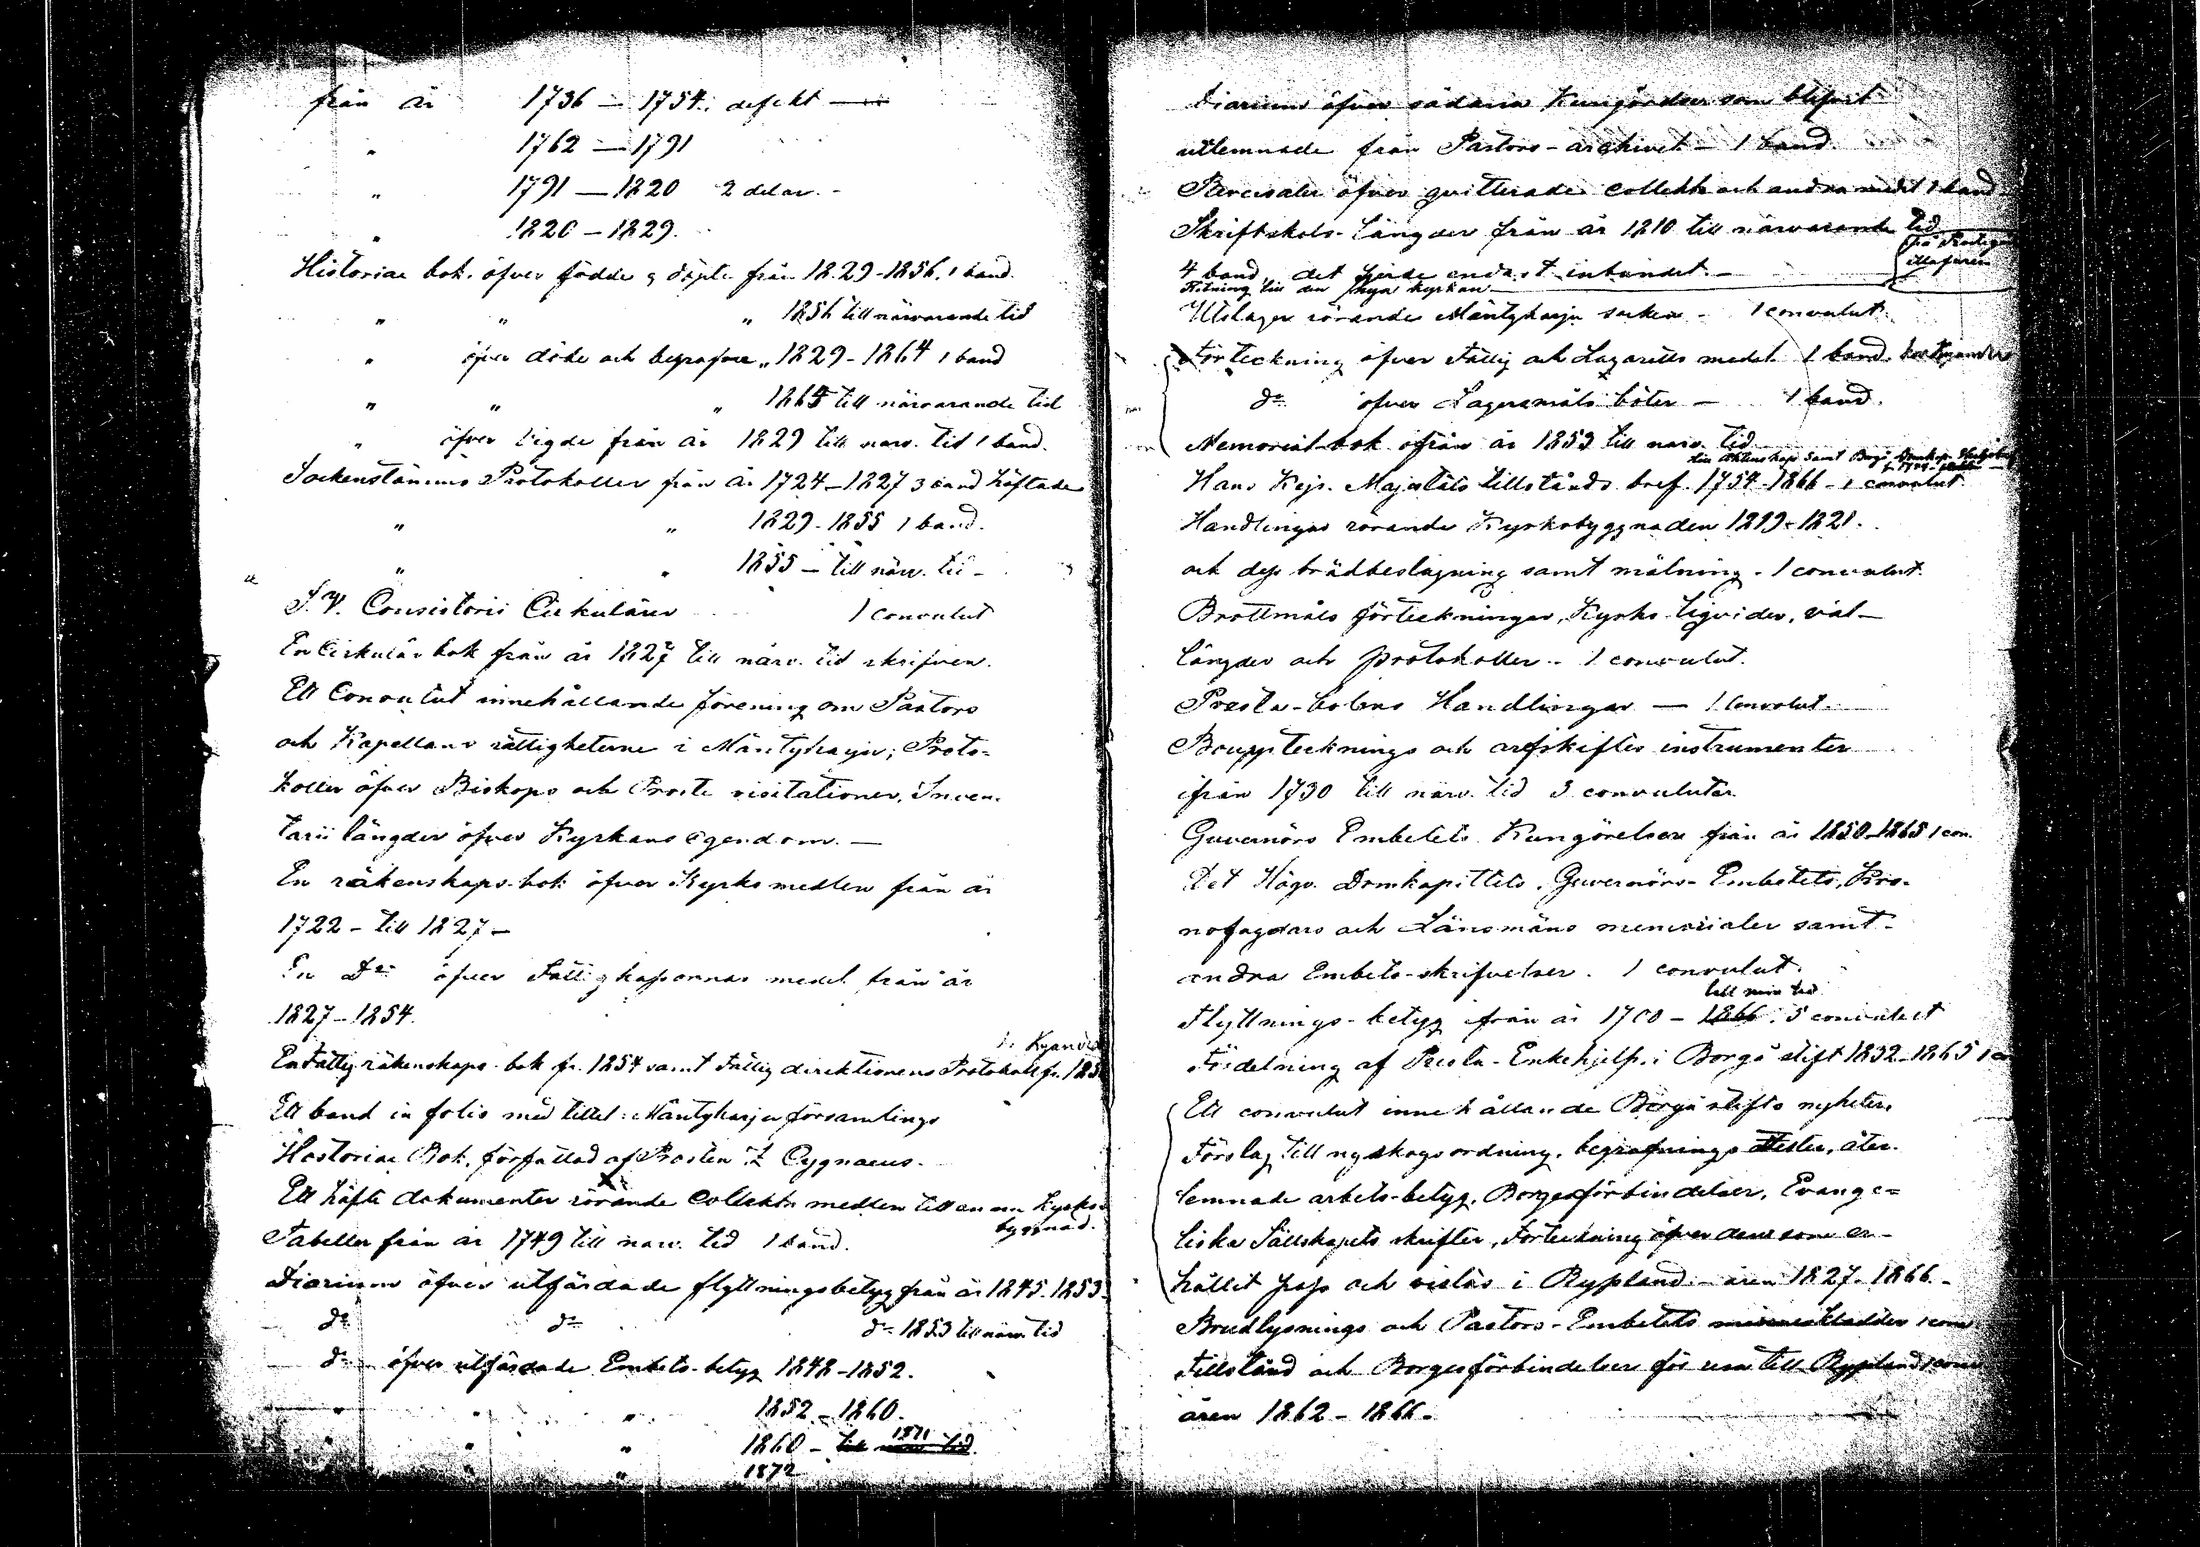 från år 1736 — 1754. defekt —
" 1762 — 1791
" 1791 — 1820 2 delar. -
" 1820 - 1829.
Historiae bok. öfver födde & döpte från 1829-1856. 1 band.
" " " 1856 till närvarande tid
" öfver döde och begrafne " 1829 - 1864 1 band
" " " 1865 till närvarande tid
" öfver vigde från år 1829 till narv. tid 1 band.
Sockenstämmo Protokoller från år 1724 - 1827 3 band häftade
" " 1829 - 1855 1 band.
" " 1855 - till närv. tid -
S. V. Consistorii Cirkulärer 1 convolut
En Cirkulär bok från år 1827 till närv. tid skrifven.
Ett Convulut innehållande förening om Pastors
och Kapellans rättigheterne i Mäntyharju; Proto-
koller öfver Biskops och Prosts visitationer, Inven-
tarii längder öfver Kyrkans egendom. —
En räkenskaps-bok öfver Kyrko medlen från år
1722 - till 1827 -
En Do öfver Fattigkassornas medel från år
1827 - 1854.
En Fattig räkenskaps-bok fr. 1854 samt Fattig direktionens Protokoll fr.
Ett band in folio med tittel: Mäntyharju församlings
Historiae Bok, författad af Prosten Z Cygnaeus.
Ett häfte dokumenter rörande Collekt medlen till en ny Kyrko-
byggnad.
Tabeller från år 1749 till narv. tid 1 band.
Diarium öfver utfärdade flyttningsbetyg från år 1845. 1853
do do do 1853 till närv tid
do öfver utfärdade Embets-betyg 1848-1852.
" " " 1852 - 1860.
" " " 1860 - till narv tid 1871
" " 1872
Diarium öfver sådana Kungörelser som blifvit
utlemnade från Pastors-archivet - 1 band.
Reversaler öfver qvitterade collekt och andra medel 1 band
Skriftskols-längder från år 1810 till närvarande tid
4 band, det fjerde endast inbundet. —
Ritning till den nya kyrkan
Utslager rörande Mäntyharju socken - 1 convulut.
Förteckning öfver Fattig och Lazaretts medel 1 band.
do öfver Lägersmåls böter - 1 band.
Memorial-bok ifrån år 1853 till narv. tid
Hans Kejs. Majestäts tillstånds bref 1754-1866 - 1 convolut.
Handlingar rörande Kyrkobyggnaden 1819-1821.
och dess brädbeslagning samt målning - 1 convulut.
Brottmåls förteckningar, Kyrko-liqvider, val-
längder och protokoller - 1 convulut.
Presta-bolens Handlingar — 1 Convolut.
Bouppteknings och arfskiftes instrumenter
ifrån 1730 till närv. tid 3 convuluter
Guvernörs Embetets Kungörelser från år 1850-1865 1 con.
Det Högv. Domkapittlets, Guvernörs-Embetets, Kro-
nofogdars och Länsmäns memorialer samt
andra Embets-skrifvelser. 1 convulut.
till narv tid
Flyttnings-betyg från år 1700 - 1866. 5 convulut
Fördelning af Presta-Enkehjelp i Borgå stift 1832-1865
Ett convulut innehållande Borgå stifts nyheter,
Förslag till ny skogsordning, begrafnings attester, åter-
lemnade arbets-betyg, Borgesförbindelser, Evange-
liska Sällskapets skrifter, Förteckning öfver dem som er-
hållit pass och vistas i Ryssland - åren 1827-1866 -
Brudlysnings och Pastors-Embetets minneskladder
Tillstånd och Borgesförbindelser för resa till Ryssland
åren 1862 - 1866.